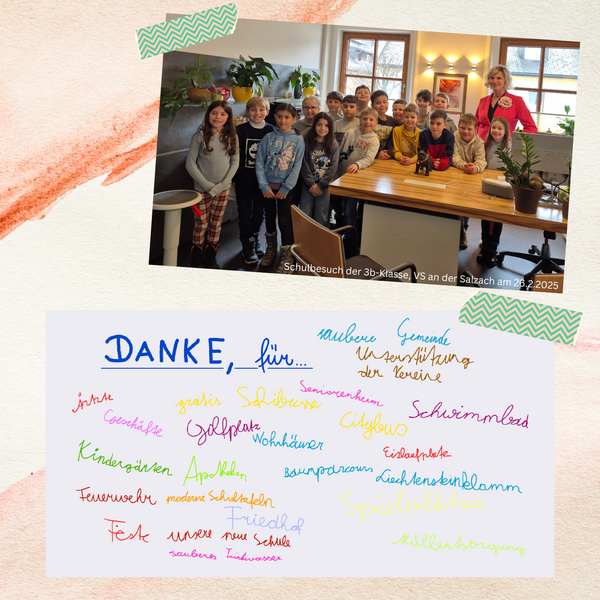 Schulbesuch der 3b-Klasse, VS an der Salzach am 26.2.2025
DANKE, für...
saubere Gemeinde
Unterstützung
der Vereine
Ärzte
gratis Schibusse
Seniorenheim
Geschäfte
Golfplatz
Citybus
Schwimmbad
Wohnhäuser
Eislaufplatz
Kindergärten
Apotheken
Baumparcours
Liechtensteinklamm
Feuerwehr
moderne Schultafeln
Spielplätze
Friedhof
Feste
unsere neue Schule
Müllentsorgung
sauberes Trinkwasser